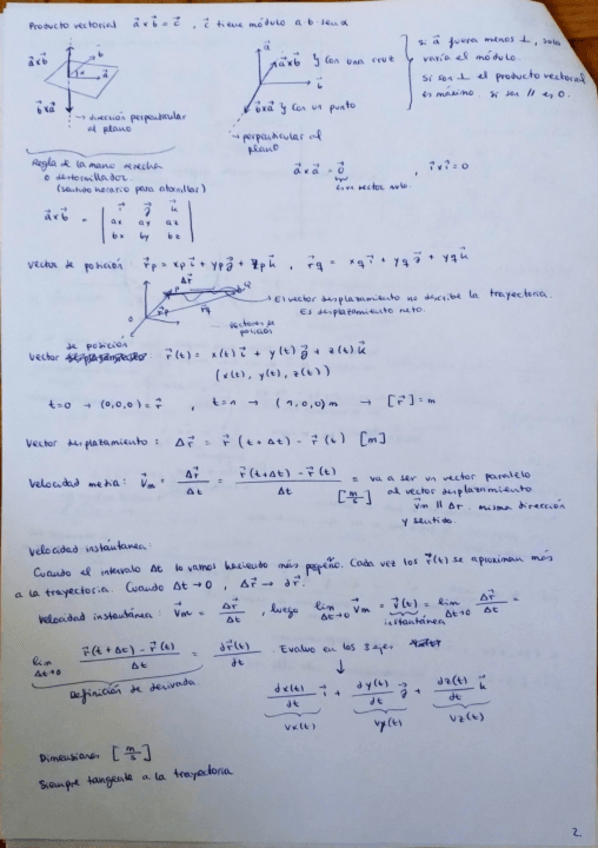 Producto vectorial a⃗ x b⃗ = c⃗ , c⃗ tiene módulo a·b·sen α
a⃗xb⃗
b⃗
α
a⃗
b⃗xa⃗
→ dirección perpendicular
al plano
a⃗
a⃗xb⃗ y con una cruz
b⃗
b⃗xa⃗ y con un punto
→ perpendicular al
plano
si a⃗ fuera menos ⊥, solo
varía el módulo.
Si son ⊥ el producto vectorial
es máximo. si son // es 0.
Regla de la mano derecha
o destornillador.
(sentido horario para atornillar)
a⃗ x a⃗ = 0⃗ , i⃗ x i⃗ = 0
es un vector nulo.
a⃗xb⃗ = | i⃗ j⃗ k⃗ |
| ax ay az |
| bx by bz |
Vector de posición: r⃗p = xp i⃗ + yp j⃗ + zp k⃗ , r⃗q = xq i⃗ + yq j⃗ + yq k⃗
Δr⃗
P
Q
r⃗p
r⃗q
0
→ El vector desplazamiento no describe la trayectoria.
Es desplazamiento neto.
vectores de
posición
de posición
Vector : r⃗(t) = x(t) i⃗ + y(t) j⃗ + z(t) k⃗
(x(t), y(t), z(t))
t=0 → (0,0,0) = r⃗ , t=1 → (1,0,0)m → [r⃗] = m
Vector desplazamiento: Δr⃗ = r⃗(t+Δt) - r⃗(t) [m]
Velocidad media: v⃗m = Δr⃗/Δt = (r⃗(t+Δt) - r⃗(t))/Δt [m/s] = va a ser un vector paralelo
al vector desplazamiento
v⃗m // Δr. misma dirección
y sentido.
Velocidad instantánea:
Cuando el intervalo Δt lo vamos haciendo más pequeño. Cada vez los r⃗(t) se aproximan más
a la trayectoria. Cuando Δt→0 , Δr⃗ → dr⃗.
Velocidad instantánea: v⃗m = Δr⃗/Δt , luego lim Δt→0 v⃗m = v⃗(t) = lim Δt→0 Δr⃗/Δt =
instantánea
lim Δt→0 (r⃗(t+Δt) - r⃗(t))/Δt = dr⃗(t)/dt . Evaluo en los 3 ejes
Definición de derivada
↓
dx(t)/dt i⃗ + dy(t)/dt j⃗ + dz(t)/dt k⃗
vx(t) vy(t) vz(t)
Dimensiones [m/s]
Siempre tangente a la trayectoria
2.